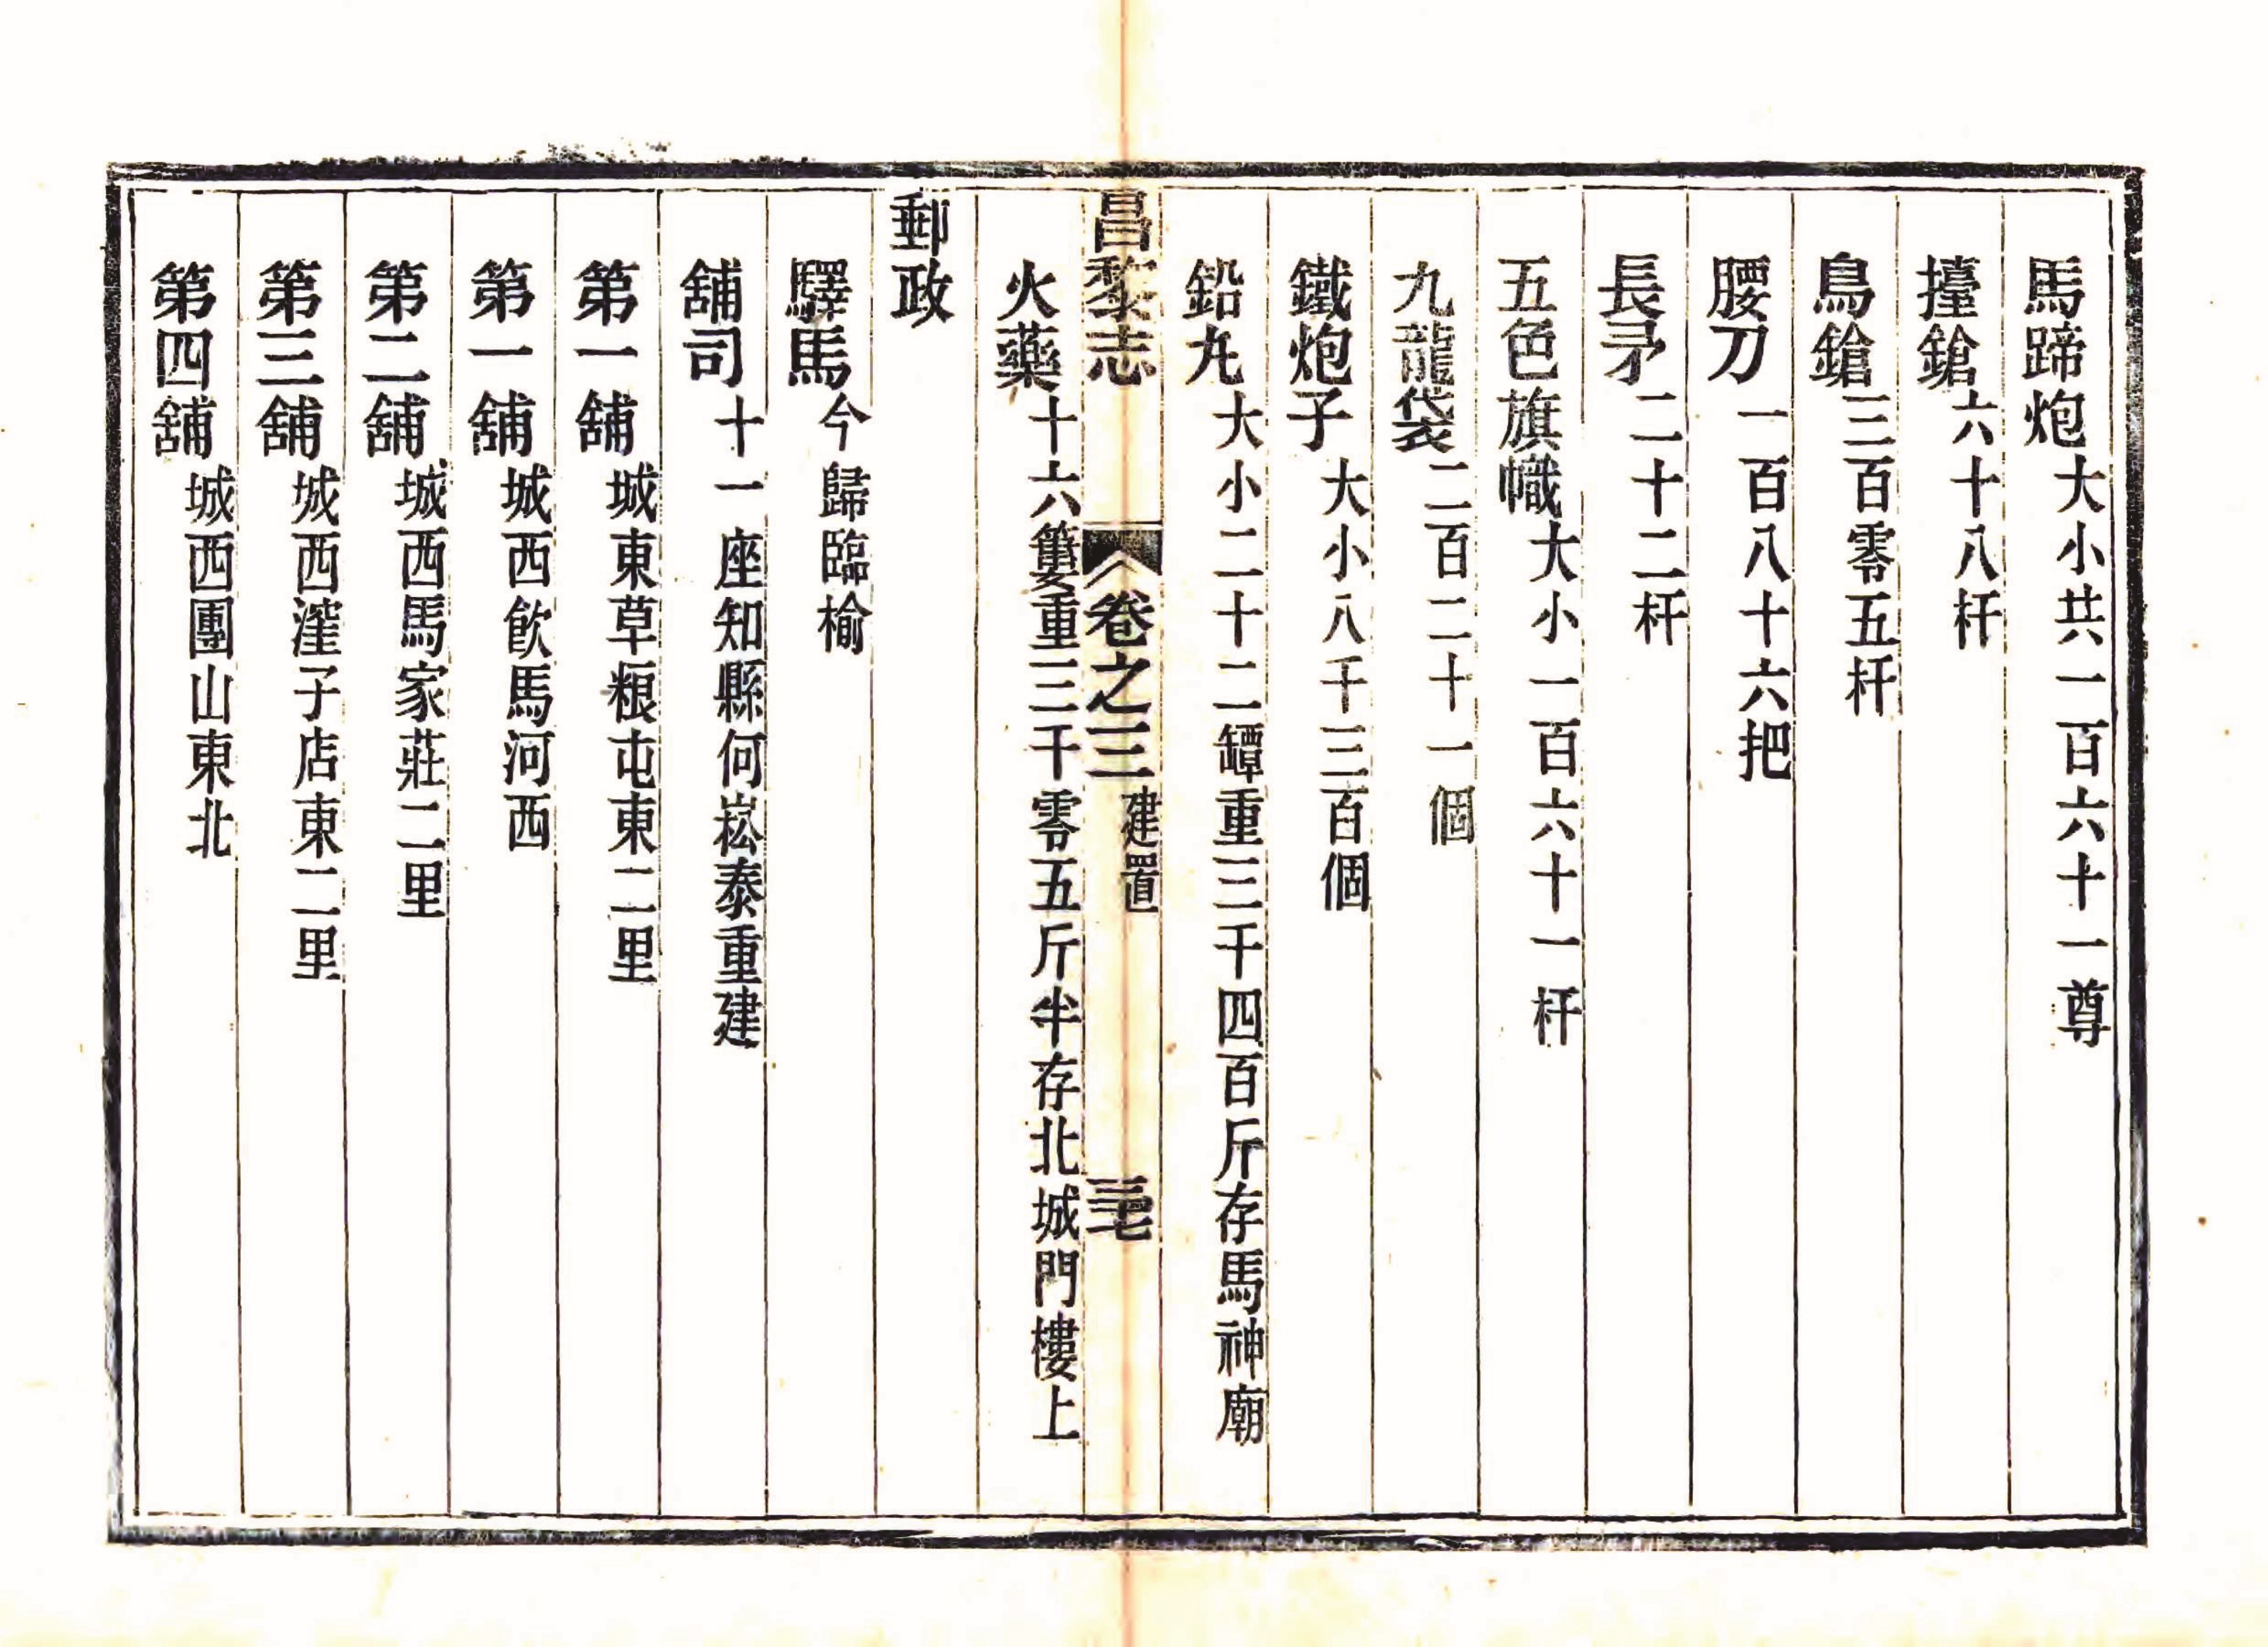 馬蹄炮大小共一百六十一尊
擡鎗六十八杆
鳥鎗三百零五杆
腰刀一百八十六把
長矛二十二杆
五色旗幟大小一百六十一杆
九龍袋二百二十一個
鐵炮子大小八千三百個
鉛丸大小二十二罈重三千四百斤存馬神廟
昌黎志 卷之三 建置 三七
火藥十六簍重三千零五斤半存北城門樓上
郵政
驛馬今歸臨榆
舖司十一座知縣何崧泰重建
第一舖城東草粮屯東二里
第一舖城西飲馬河西
第二舖城西馬家莊二里
第三舖城西漥子店東二里
第四舖城西團山東北